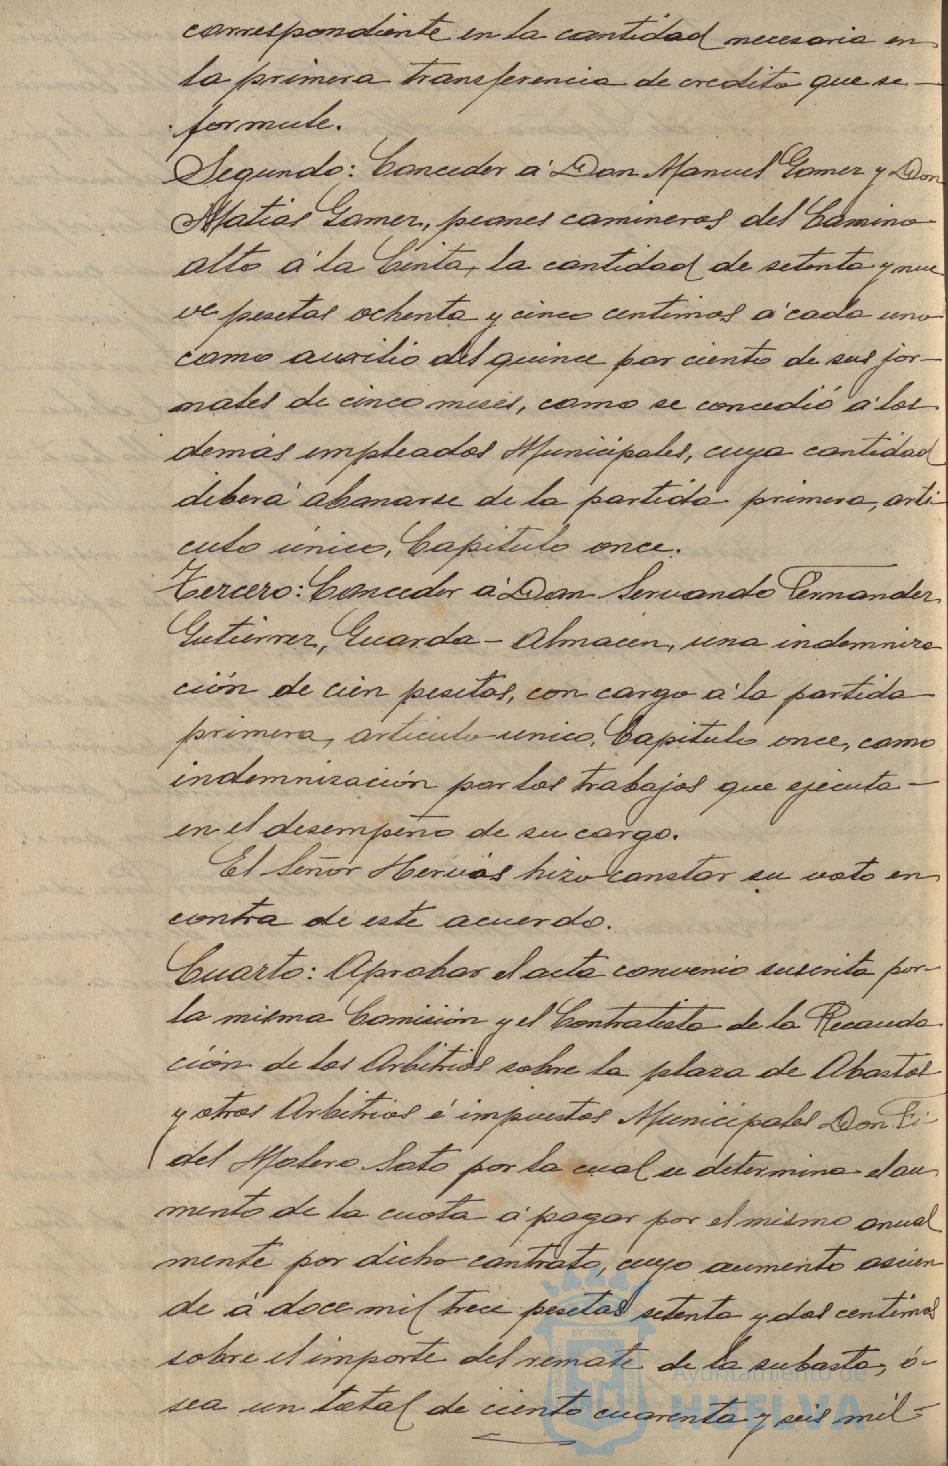 correspondiente en la cantidad necesaria en
la primera transferencia de credito que se
formule.
Segundo: Conceder á Don Manuel Gomez y Don
Matias Gomez, peones camineros del Camino
alto á la Cinta, la cantidad de setenta y nue
ve pesetas ochenta y cinco centimos á cada uno
como auxilio del quince por ciento de sus jor-
nales de cinco meses, como se concedió á los
demás empleados Municipales, cuya cantidad
deberá abonarse de la partida primera, arti-
culo único, Capitulo once.
Tercero: Conceder á Don Servando Fernandez
Gutierrez, Guarda-Almacen, una indemniza
ción de cien pesetas, con cargo á la partida
primera, articulo unico, Capitulo once, como
indemnización por los trabajos que ejecuta
en el desempeño de su cargo.
El Señor Hervás hizo constar su voto en
contra de este acuerdo.
Cuarto: Aprobar el acta convenio suscrita por
la misma Comisión y el Contratista de la Recauda
ción de los Arbitrios sobre la plaza de Abastos
y otros Arbitrios é impuestos Municipales Don Fi-
del Molero Soto por la cual se determina el au
mento de la cuota á pagar por el mismo anual
mente por dicho contrato, cuyo aumento ascien
de á doce mil trece pesetas setenta y dos centimos
sobre el importe del remate de la subasta, ó
sea un total de ciento cuarenta y seis mil
ET TERRÆ
Ayuntamiento de
HUELVA